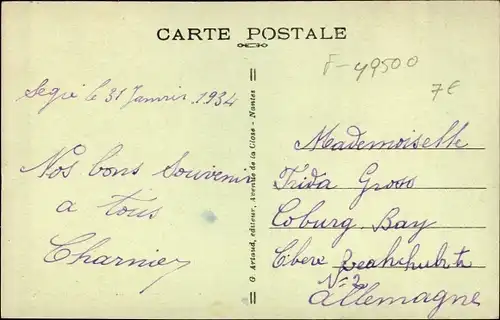 CARTE POSTALE
F-49500
7€
Segré le 31 Janvier 1934
Nos bons Souvenir
a tous
Charnier
G. Artaud, éditeur, Avenue de la Close - Nantes
Mademoiselle
Frida Gross
Coburg Bay
Obere
N=2
Allemagne